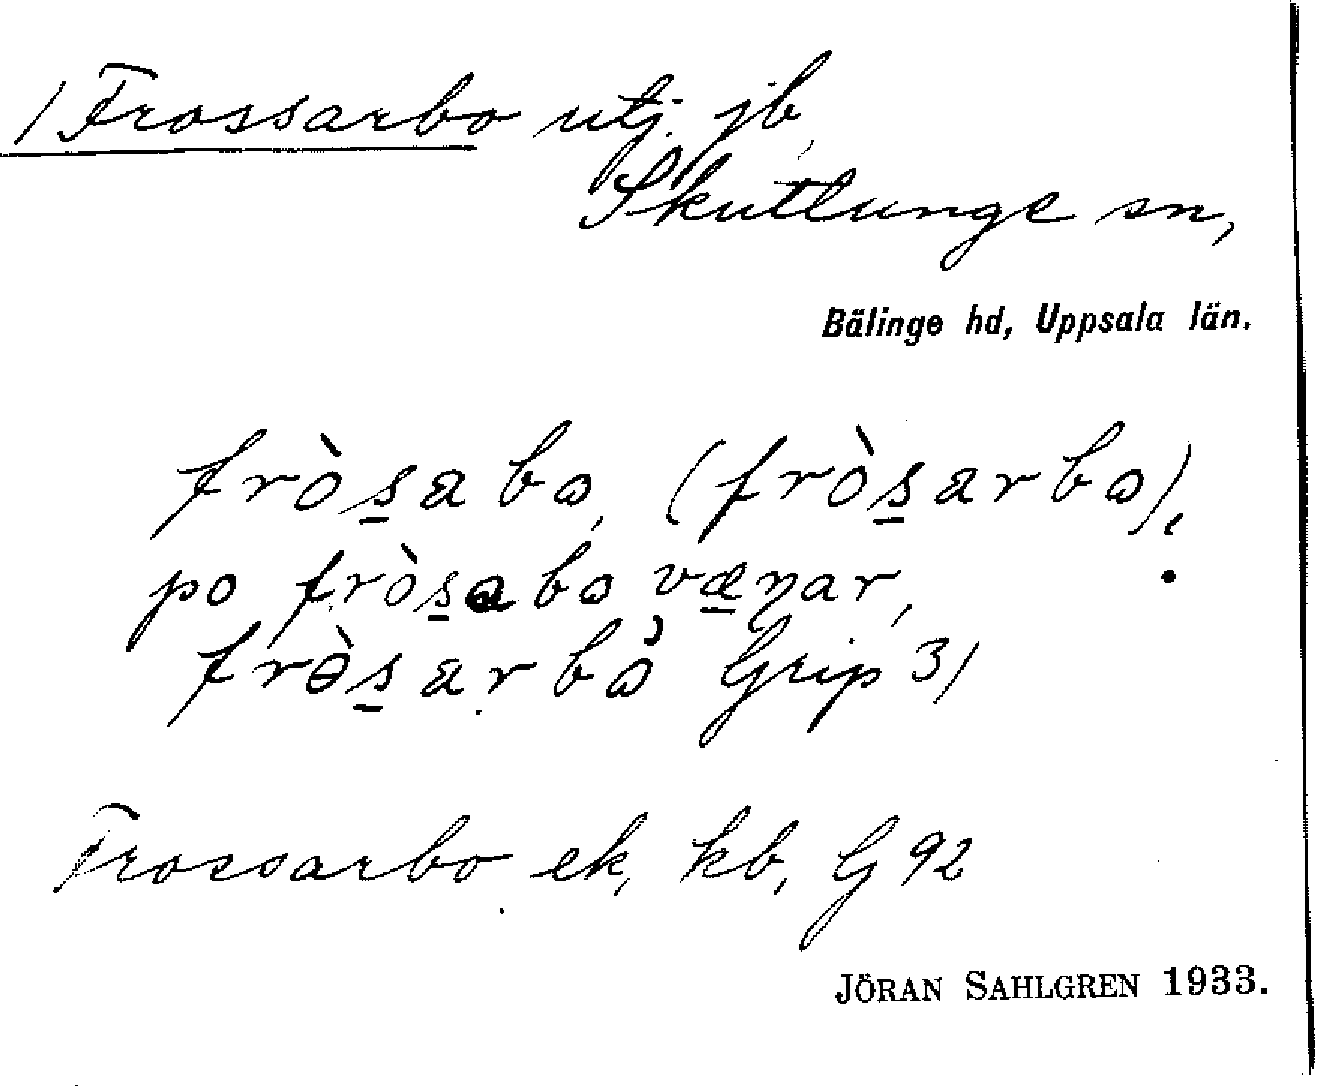 / Frossarbo utj. jb,
Skuttunge sn,
Bälinge hd, Uppsala län.
fròs̲abo, (fròs̲arbo),
po fròs̲abo væ̲ŋar,
frɵ̀s̲arbo Grip 31
Frossarbo ek, kb, G 92
JÖRAN SAHLGREN 1933.